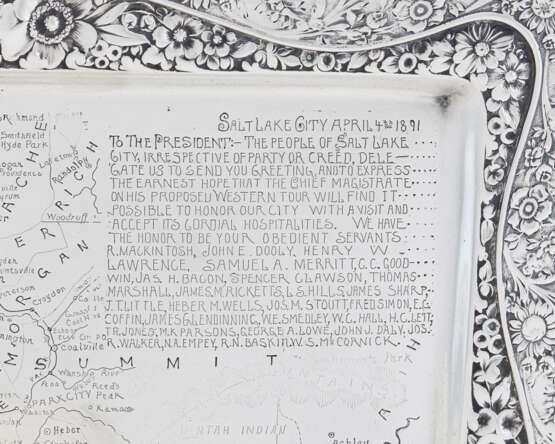 Salt Lake City April 4th 1891
To The President:- The people of Salt Lake
City, irrespective of party or creed, dele-
gate us to send you greeting, and to express
the earnest hope that the Chief Magistrate
on his proposed Western tour will find it
possible to honor our city with a visit and
accept its cordial hospitalities. We have
the honor to be your obedient servants:
R. Mackintosh, John E. Dooly, Henry W.
Lawrence, Samuel A. Merritt, C.C. Good-
win, Jas. H. Bacon, Spencer Clawson, Thomas
Marshall, James M. Ricketts, L.S. Hills, James Sharp,
J.T. Little, Heber M. Wells, Jos. M. Stoutt, Fred Simon, E.G.
Coffin, James Glendinning, W.E. Smedley, W.C. Hall, H.C. Lett,
T.R. Jones, M.K. Parsons, George A. Lowe, John J. Daly, Jos.
R. Walker, N.A. Empey, R.N. Baskin, W.S. McCornick.
Smithfield
Hyde Park
Laketown
Randolph
Woodruff
Croydon
Coalville
SUMMIT
Wanship
PARK CITY
Peak
Reed's
Peak
Kamas
Heber
UINTAH INDIAN
Ashley